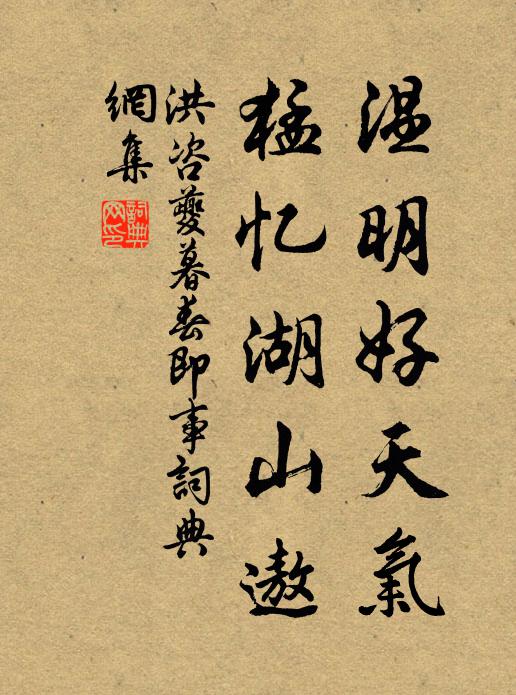 温明好天氣
猛忆湖山遨
洪咨夔暮春即事詞典
網集
詞典
网印